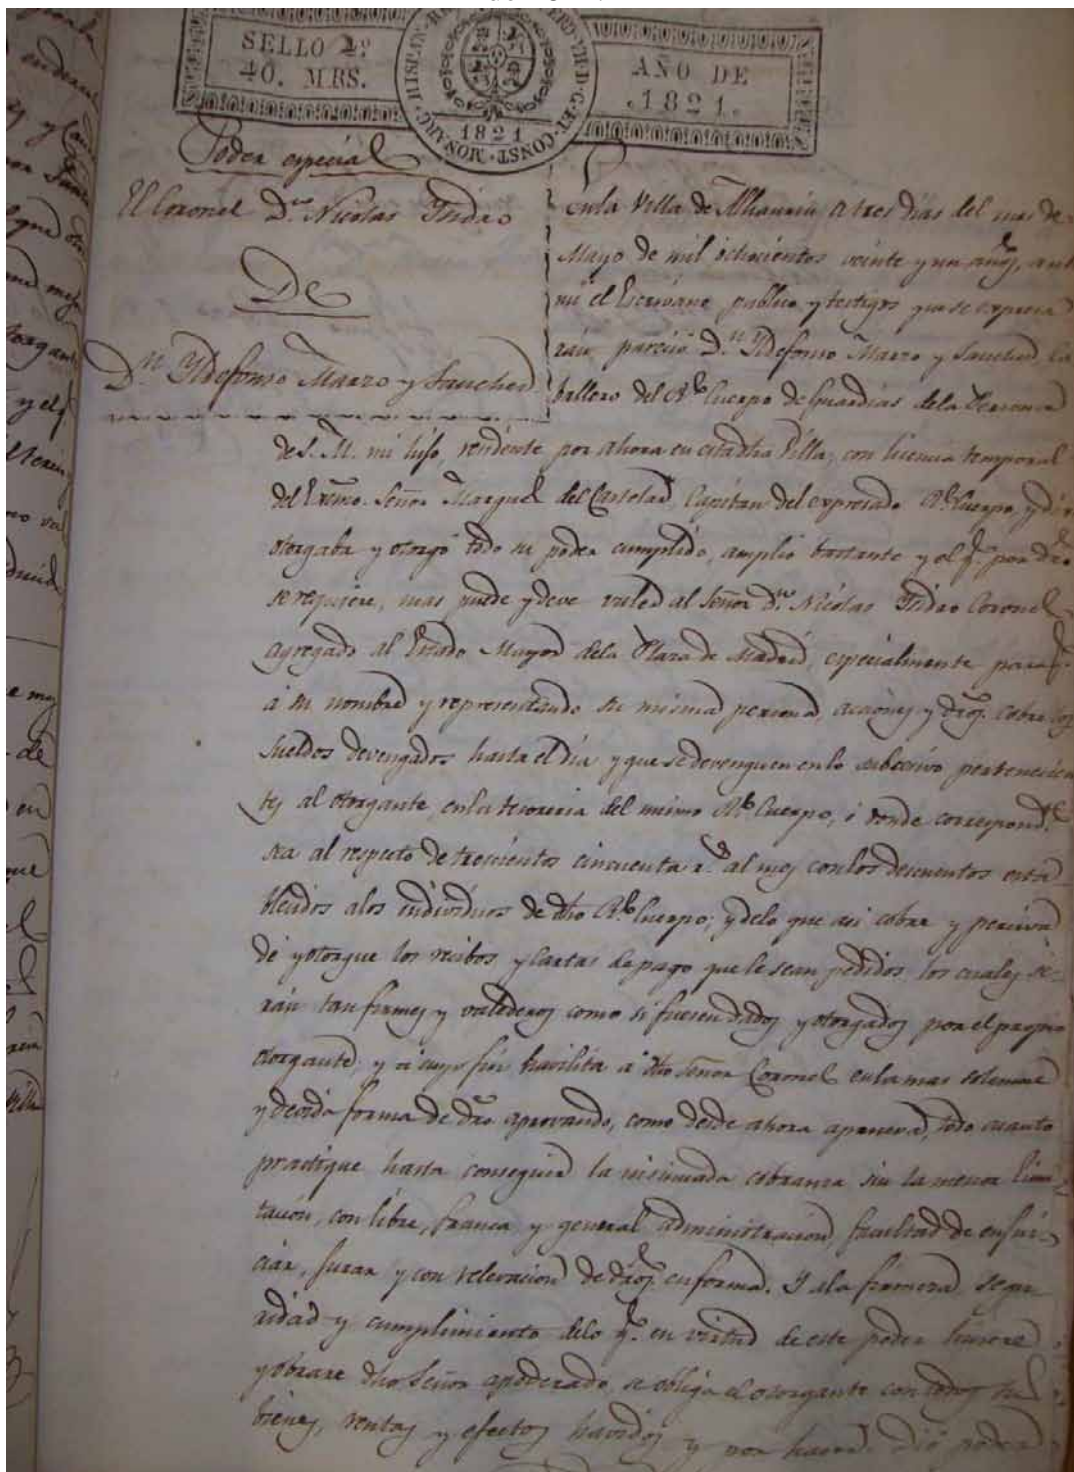 SELLO 2º
40. MRS.
HISPAN. RE
VII. D. G. ET CONST. MONARC.
1821
AÑO DE
.1821.
Poder especial
El Coronel Dn. Nicolas Ysidro
De
Dn. Yldefonso Marzo y Sanched
enla Villa de Alhaurin a tres dias del mes de
Mayo de mil ochocientos veinte y un años, ante
mi el Escrivano publico y testigos que se expresa
rán, pareció Dn. Yldefonso Marzo y Sanched, Ca
ballero del Rl. Cuerpo de Guardias dela Persona
de S. M. mi hijo, residente por ahora en esta dha Villa, con licencia temporal
del Exmo. Señor Marques del Castelar, Capitan del expresado Rl. Cuerpo, y dijo
otorgaba y otorgó todo su poder cumplido, amplio bastante y el q. por dro
se requiere, mas puede y deve valer al Señor Dn. Nicolas Ysidro Coronel
agregado al Estado Mayor dela Plaza de Madrid, especialmente para q.
á su nombre y representando su misma persona, acciones y dros. cobre los
sueldos devengados hasta el dia y que se devenguen enlo subcesivo pertenecien
tes al otorgante, enla tesoreria del mismo Rl. Cuerpo, ó donde correspond.
sea al respecto de trescientos cincuenta rs. al mes conlos descuentos esta
blecidos alos individuos de dho Rl. Cuerpo; y delo que asi cobre y perciva
dé y otorgue los recibos y Cartas de pago que le sean pedidos, los cuales se
rán tan firmes y valederos como si fuesen dados y otorgados por el propio
otorgante; y á cuyo fin havilita á dho Señor Coronel enla mas solemne
y devida forma de dro. aprovando, como desde ahora aprueva, todo cuanto
practique hasta conseguir la insinuada cobranza sin la menor limi
tación, con libre, franca y general administracion, facultad de enjui
ciar, jurar y con relevacion de dros. en forma. Y ala firmeza segu
ridad y cumplimiento delo q. en virtud de este poder hiciere
y obrare dho Señor apoderado, se obliga el otorgante con todos sus
bienes, rentas y efectos havidos y por haver. Dió poder